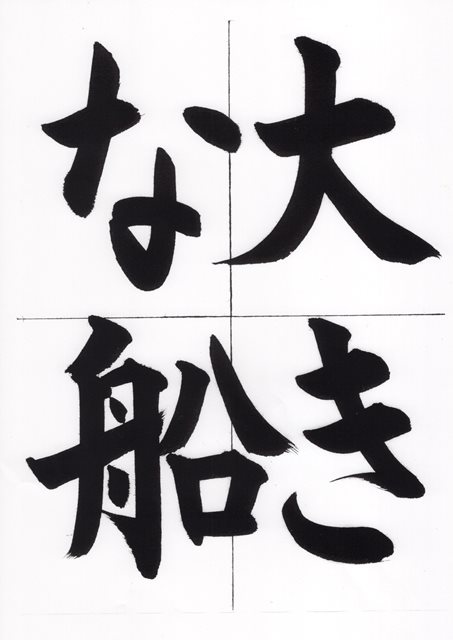 大き
な船